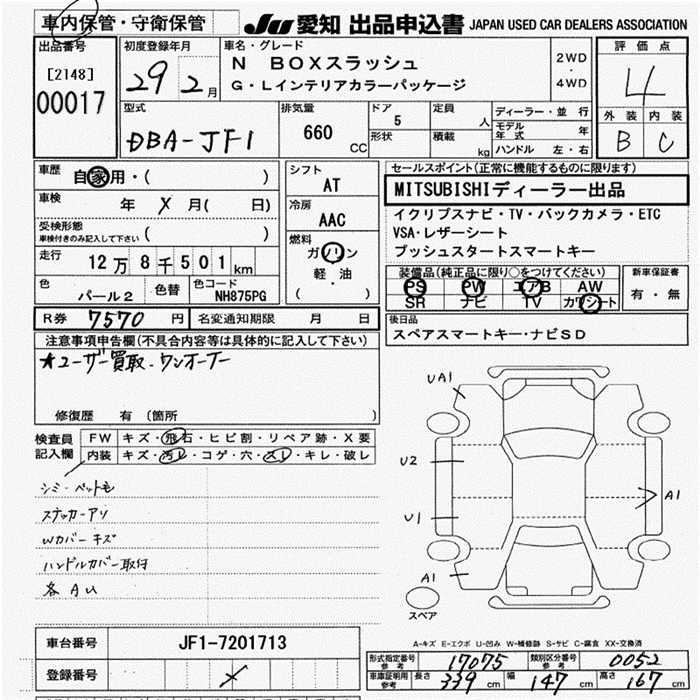 車内保管・守衛保管
JU 愛知 出品申込書 JAPAN USED CAR DEALERS ASSOCIATION
出品番号
[2148]
00017
初度登録年月
29年2月
車名・グレード
N BOXスラッシュ
G・Lインテリアカラーパッケージ
2WD
・
4WD
評価点
4
外装 内装
B C
型式
DBA-JF1
排気量
660
CC
ドア 5
形状
定員 人
積載 kg
ディーラー・並行
モデル年式 年
ハンドル 左・右
車歴
自家用・( )
車検 年 × 月( 日)
受検形態
車検付きのみ記入して下さい ( )
走行 12万8千501km
色 パール2 色替 色コード NH875PG
シフト
AT
冷房
AAC
燃料
ガソリン
軽・油
( )
セールスポイント(正常に機能するものに限ります)
MITSUBISHIディーラー出品
イクリプスナビ・TV・バックカメラ・ETC
VSA・レザーシート
プッシュスタートスマートキー
装備品(純正品に限り○をつけてください)
PS PW エアB AW
SR ナビ TV カワシート
新車保証書
有・無
R券 7570円 名変通知期限 月 日
後日品
スペアスマートキー・ナビSD
注意事項申告欄(不具合内容等は具体的に記入して下さい)
★ユーザー買取・ワンオーナー
修復歴 有 (箇所 )
検査員
記入欄
FW キズ・飛石・ヒビ割・リペア跡・X要
内装 キズ・汚レ・コゲ・穴・スレ・キレ・破レ
シミ・ペット毛
ステッカーアリ
Wカバーキズ
ハンドルカバー取付
各AU
UA1
U2
U1
A1
A1
スペア
A-キズ E-エクボ U-凹み W-補修跡 S-サビ C-腐食 XX-交換済
車台番号 JF1-7201713
登録番号 ×
形式指定番号 参考 17075 類別区分番号 参考 0052
車庫証明用 参考 長さ 339cm 幅 147cm 高さ 167cm